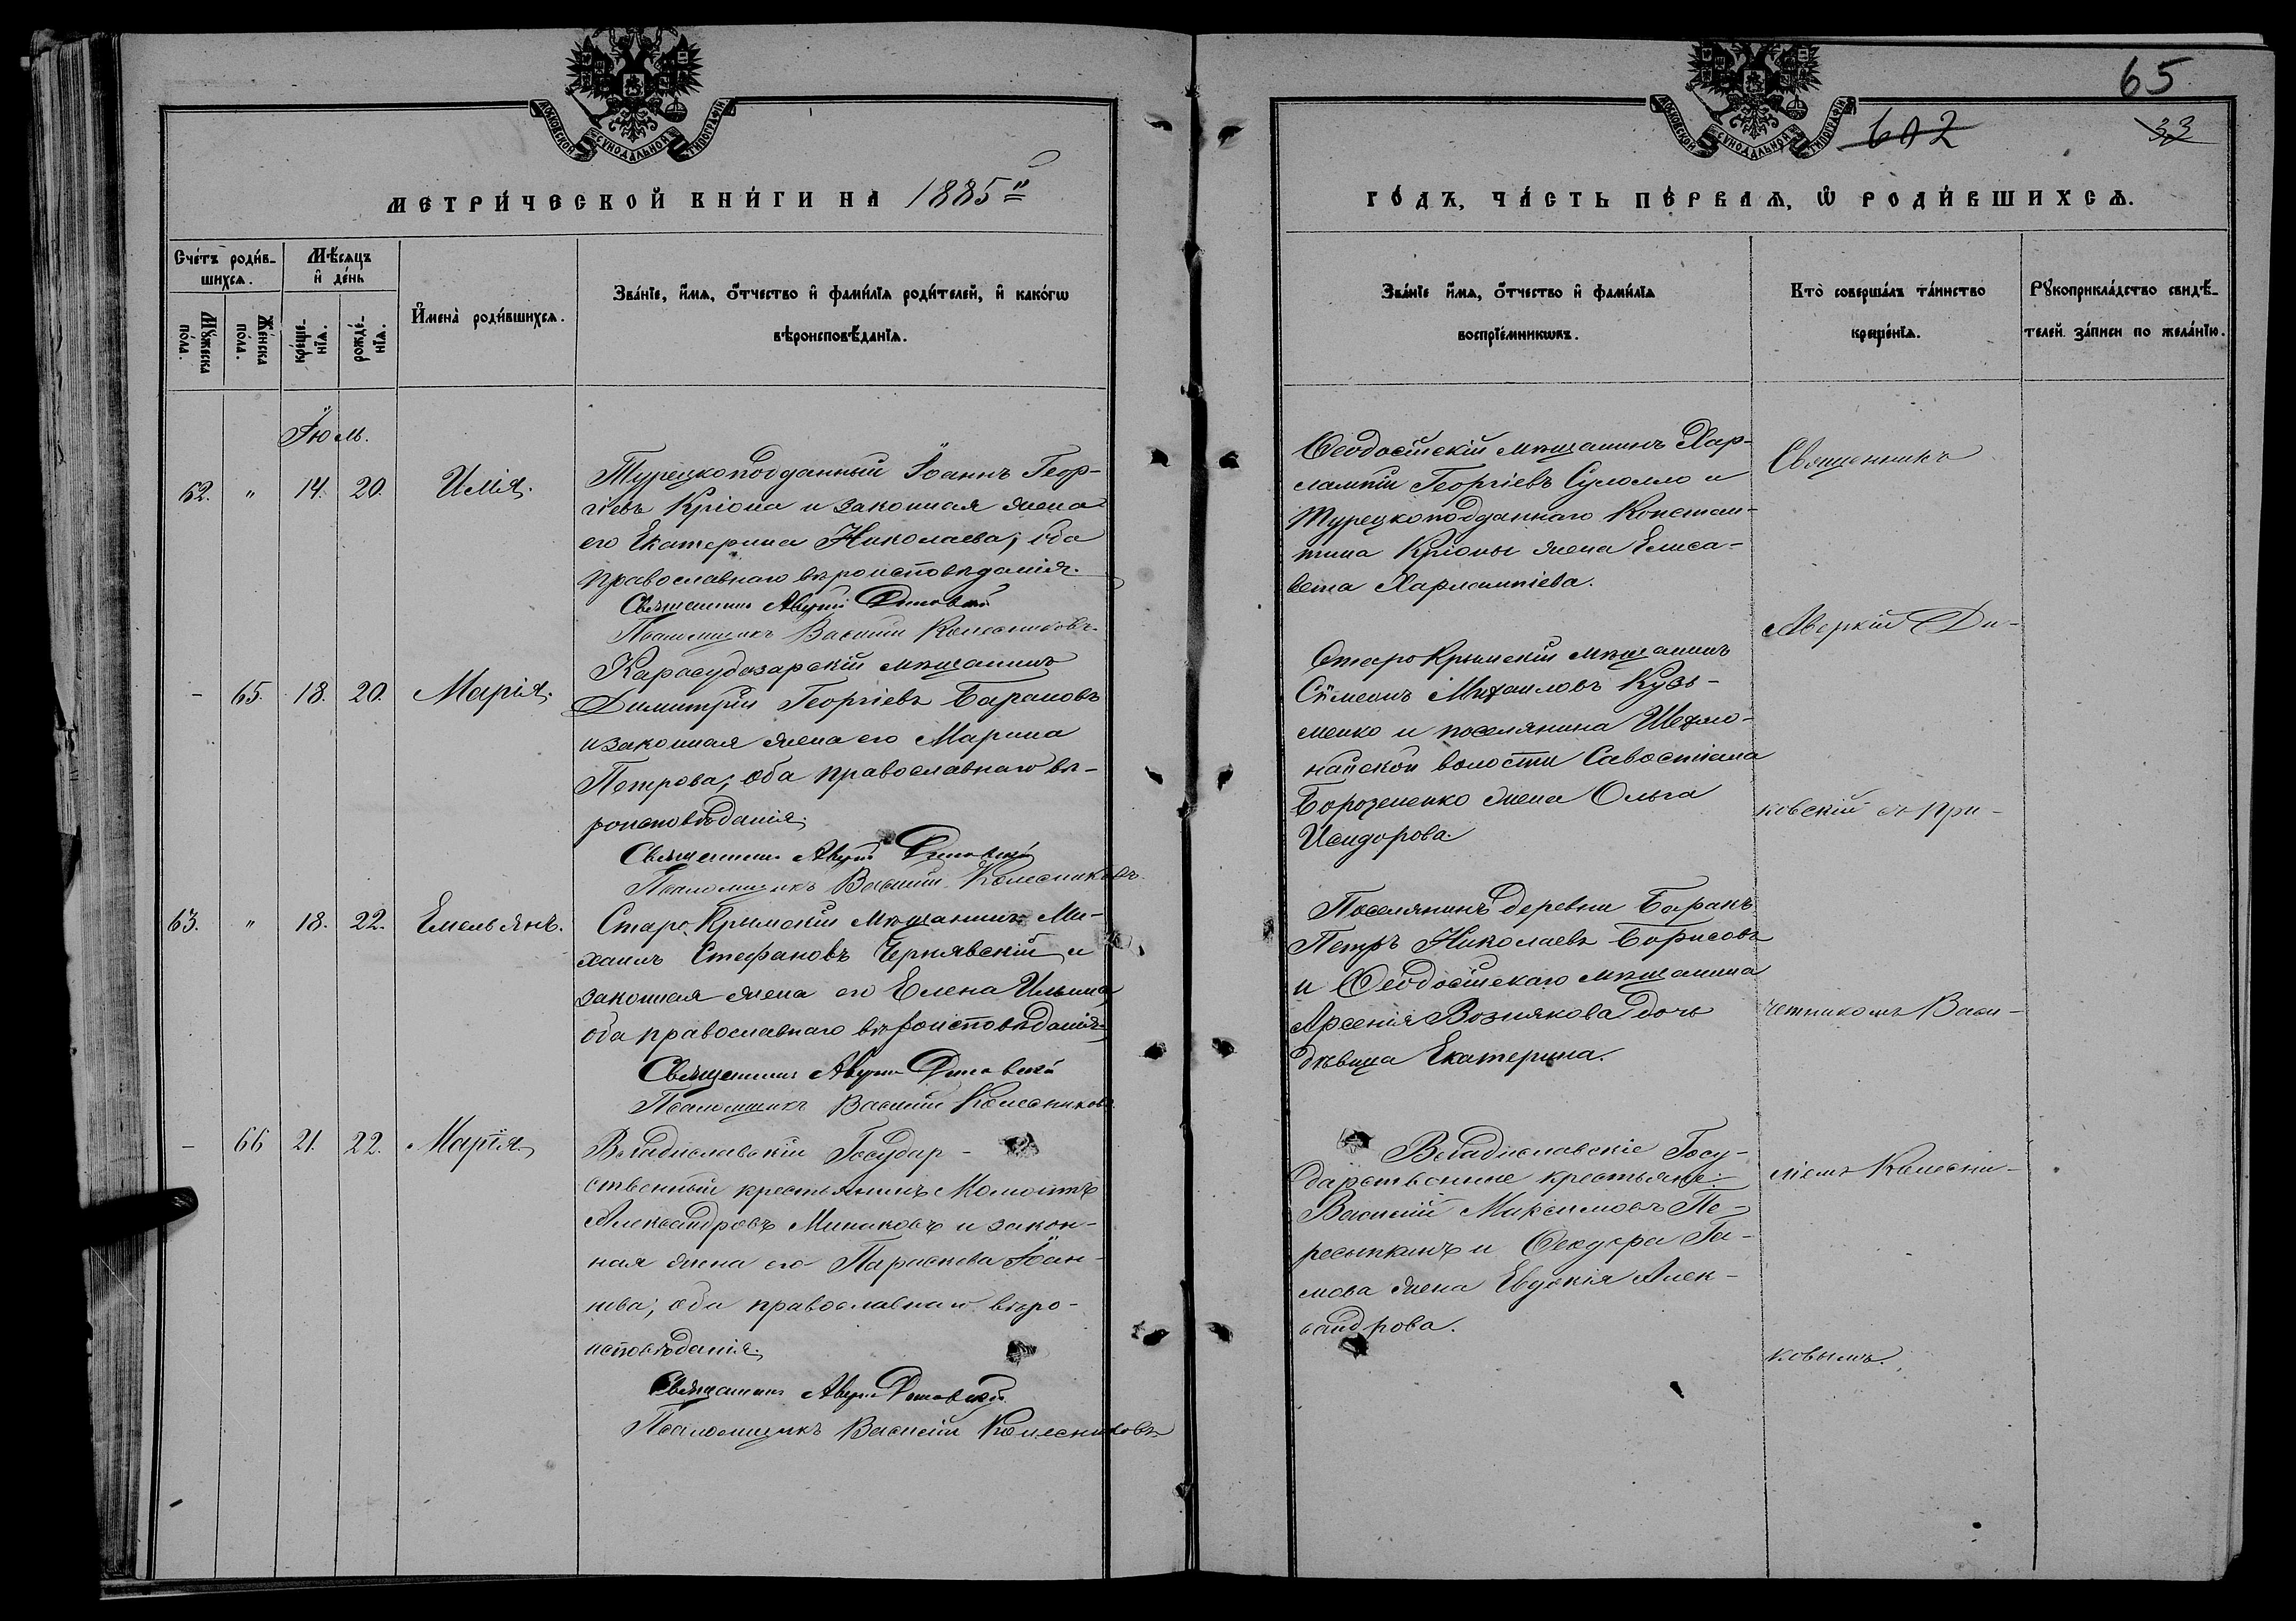 65
602
33
МОСКОВСКОЙ СѴНОДАЛЬНОЙ ТИПОГРАФІИ
МОСКОВСКОЙ СѴНОДАЛЬНОЙ ТИПОГРАФІИ
МЕТРИ́ЧЕСКОЙ КНИ́ГИ НА 1885й
ГО́ДЪ, ЧА́СТЬ ПЕ́РВАѦ, Ѡ РОДИ́ВШИХСѦ.
Сче́тъ роди́в-
шихсѧ.
Мꙋ́жеска
по́ла.
Же́нска
по́ла.
Мѣ́сѧцъ
и҆ де́нь
креще́-
нїѧ.
рожде́-
нїѧ.
И҆мена̀ роди́вшихсѧ.
Зва́нїе, и҆́мѧ, ѻ҆́тчество и҆ фами́лїѧ роди́телей, и҆ како́гѡ
вѣроисповѣ́данїѧ.
Зва́нїе и҆́мѧ, ѻ҆́тчество и҆ фами́лїѧ
воспрїе́мникѡвъ.
Кто̀ соверша́лъ та́инство
креще́нїѧ.
Рꙋкоприкла́дство свидѣ́-
телей за́писи по жела́нїю.
Іюль.
62. " 14. 20. Илія.
Турецкоподданный Іоаннъ Геор-
гіевъ Кріона и законная жена
его Екатерина Николаева; оба
православнаго вѣроисповѣданія.
Священникъ Аверкій Диковскій
Псаломщикъ Василій Колесниковъ
Ѳеодосійскій мѣщанинъ Хар-
лампій Георгіевъ Суломло и
Турецкоподданнаго Констан-
тина Кріоны жена Елиса-
вета Харлампіева.
- 65. 18. 20. Марія.
Карасубазарскій мѣщанинъ
Димитрій Георгіевъ Барановъ
и законная жена его Марина
Петрова; оба православнаго вѣ-
роисповѣданія.
Священникъ Аверкій Диковскій
Псаломщикъ Василій Колесниковъ
Старокрымскій мѣщанинъ
Сѵмеонъ Михаиловъ Кузь-
менко и поселянина
волости Савостіана
жена Ольга
Исидорова.
63. " 18. 22. Емельянъ.
Старокрымскій мѣщанинъ Ми-
хаилъ Стефановъ Чернявскій и
законная жена его Елена Ильина
оба православнаго вѣроисповѣданія.
Священникъ Аверкій Диковскій
Псаломщикъ Василій Колесниковъ
Поселянинъ деревни Баракъ
Петръ Николаевъ Борисовъ
и Ѳеодосійскаго мѣщанина
Арсенія Вознякова дочь
дѣвица Екатерина.
- 66 21. 22. Марія.
Владиславскій Государ-
ственный крестьянинъ
Александровъ Минаковъ и закон-
ная жена его Параскева Іоан-
нова; оба православнаго вѣро-
исповѣданія.
Священникъ Аверкій Диковскій
Псаломщикъ Василій Колесниковъ
Владиславскіе Госу-
дарственные крестьяне:
Василій Максимовъ Пе-
ресыпкинъ и Ѳеодора Га-
мова жена Евдокія Алек-
сандрова.
Священникъ
Аверкій Ди-
ковскій съ при-
четникомъ Васи-
ліемъ Колесни-
ковымъ.